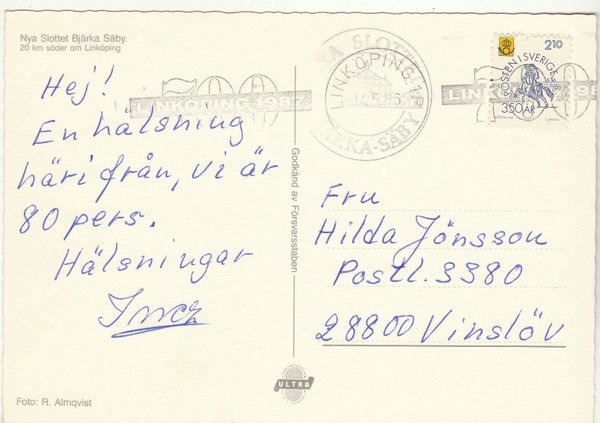 Nya Slottet Bjärka Säby.
20 km söder om Linköping
Hej!
En hälsning
härifrån, vi är
80 pers.
Hälsningar
Godkänd av Försvarsstaben
NYA SLOTTET
BJÄRKA-SÄBY
LINKÖPING 1
700
LINKÖPING 1987
2,10
POSTEN I SVERIGE
350 ÅR
Fru
Hilda Jönsson
Postl. 3380
28800 Vinslöv
ULTRA
Foto: R. Almqvist